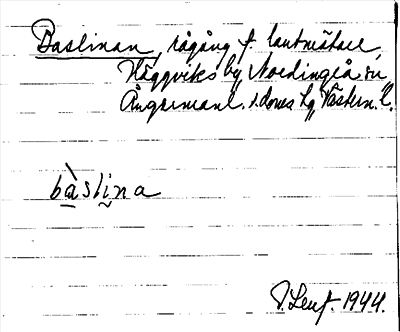 Baslinan, rågång f. lantmätare,
Häggviks by, Nordingrå sn,
Ångermanl. s. domss. Lg Västern. l.
bàslina
1944.